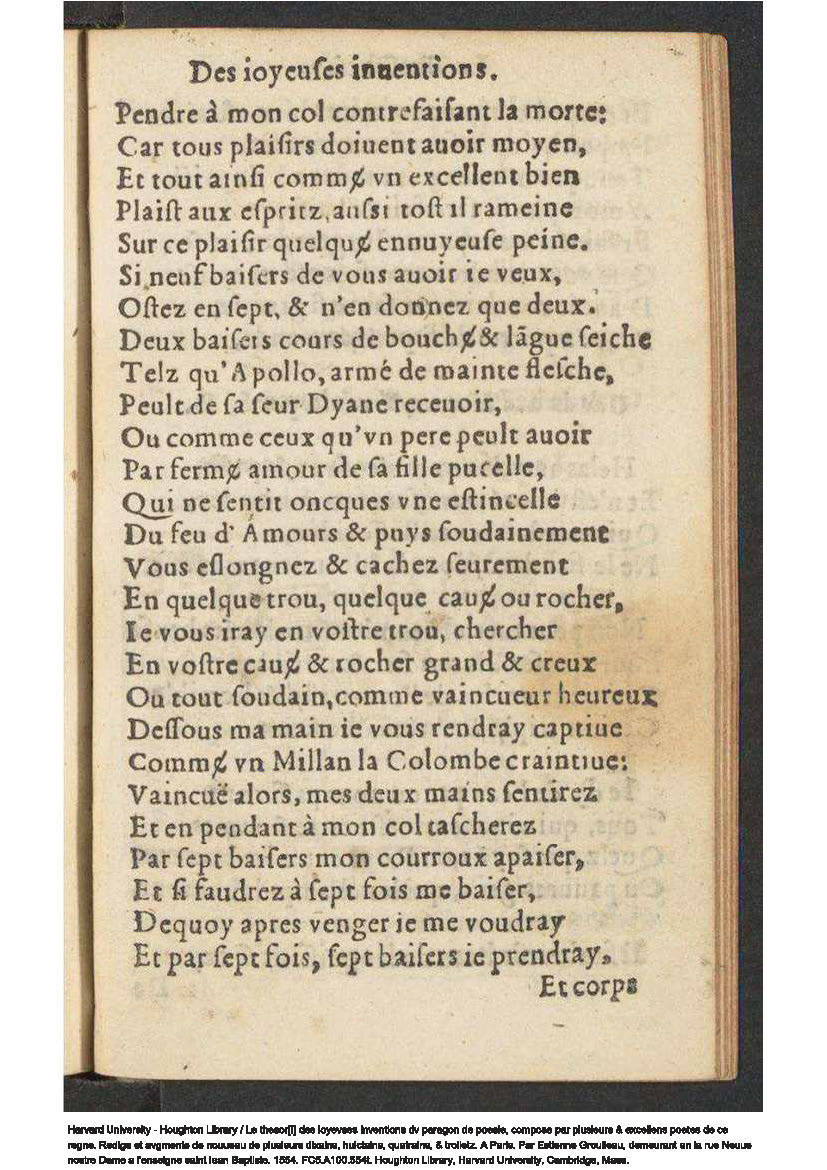 Des ioyeuſes inuentions.
Pendre à mon col contrefaiſant la morte:
Car tous plaiſirs doiuent auoir moyen,
Et tout ainſi comme̸ vn excellent bien
Plaiſt aux eſpritz, auſsi toſt il rameine
Sur ce plaiſir quelque̸ ennuyeuſe peine.
Si neuf baiſers de vous auoir ie veux,
Oſtez en ſept, & n'en donnez que deux.
Deux baiſers cours de bouche̸ & lãgue ſeiche
Telz qu'Apollo, armé de mainte fleſche,
Peult de ſa ſeur Dyane receuoir,
Ou comme ceux qu'vn pere peult auoir
Par ferme̸ amour de ſa fille pucelle,
Qui ne ſentit oncques vne eſtincelle
Du feu d'Amours & puys ſoudainement
Vous eſlongnez & cachez ſeurement
En quelque trou, quelque caue̸ ou rocher,
Ie vous iray en voſtre trou, chercher
En voſtre caue̸ & rocher grand & creux
Ou tout ſoudain, comme vaincueur heureux
Deſſous ma main ie vous rendray captiue
Comme̸ vn Millan la Colombe craintiue:
Vaincuë alors, mes deux mains ſentirez
Et en pendant à mon col taſcherez
Par ſept baiſers mon courroux apaiſer,
Et ſi faudrez à ſept fois me baiſer,
Dequoy apres venger ie me voudray
Et par ſept fois, ſept baiſers ie prendray,
Et corps
Harvard University - Houghton Library / Le thesor[i] des ioyevses inventions dv paragon de poesie, compose par plusieurs & excellens poetes de ce
regne. Redige et avgmente de nouueau de plusieurs dixains, huictains, quatrains, & triolletz. A Paris. Par Estienne Groulleau, demeurant en la rue Neuue
nostre Dame a l'enseigne saint Iean Baptiste. 1554. FC5.A100.554t. Houghton Library, Harvard University, Cambridge, Mass.